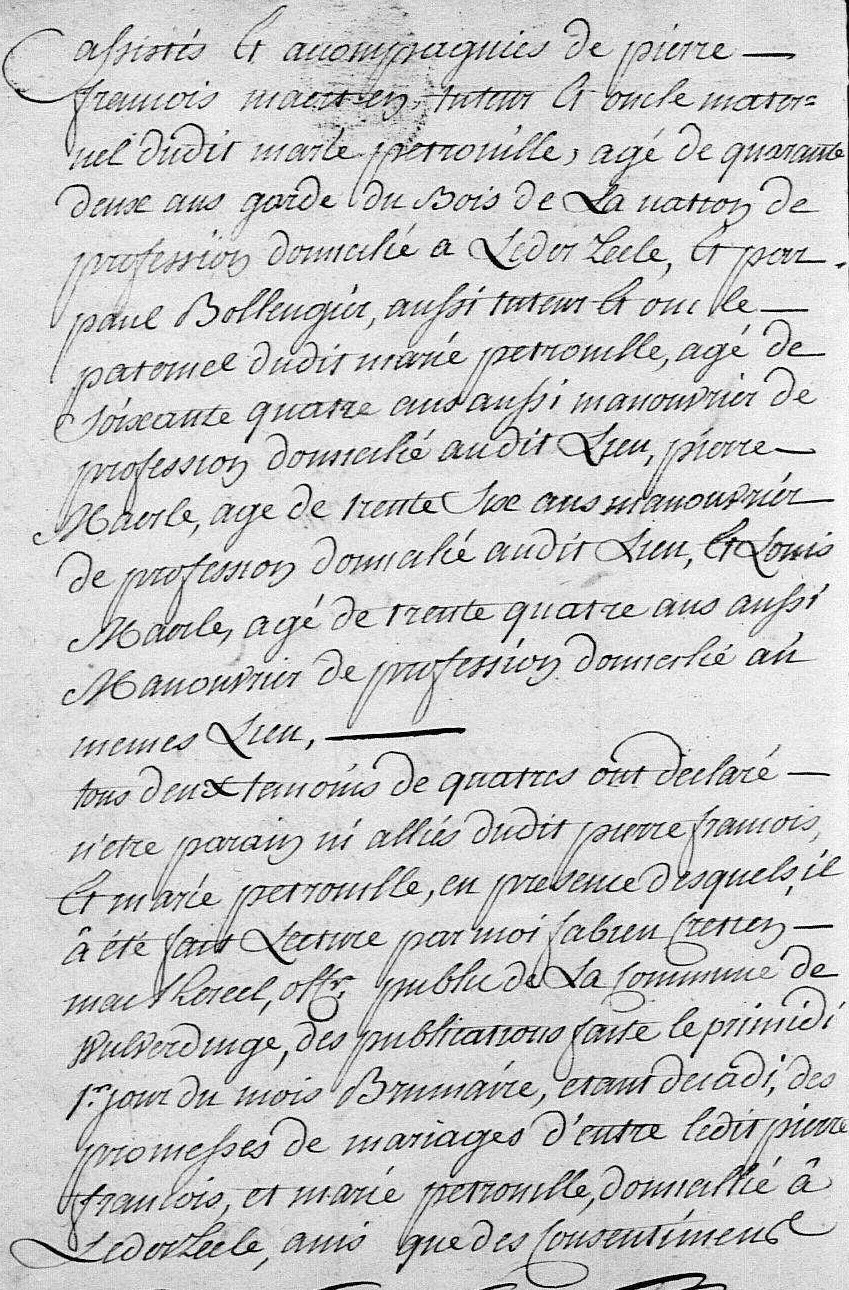 assistés Et acompagniés de pierre —
francois maerten, tuteur Et oncle mater=
nel dudit marie petronille, agé de quarante
deux ans garde du Bois de La nation de
profession domicilié a LederZeele, Et par
paul Bollengier, aussi tuteur Et oncle —
paternel dudit marie petronille, agé de
Soixante quatre ans aussi manouvrier de
profession domicilié audit Lieu, pierre —
Maerle, age de trente Six ans manouvrier
de profession domicilié audit Lieu, Et Louis
Maerle, agé de trente quatre ans aussi
Manouvrier de profession domicilié au
memes Lieu, —
tous deux temoins de quatres ont declaré —
n'etre parain ni alliés dudit pierre francois,
Et marie petronille, en presence desquels, il
â été fait Lecture par moi fabien Cretien —
offr. public de La Commune de
Wulverdinge, des publications faite le primidi
1.er jour du mois Brumaire, etant decâdi, des
promesses de mariages d'entre ledit pierre
francois, et marie petronille, domicillié â
LederZeele, ainsi que des Consentimens